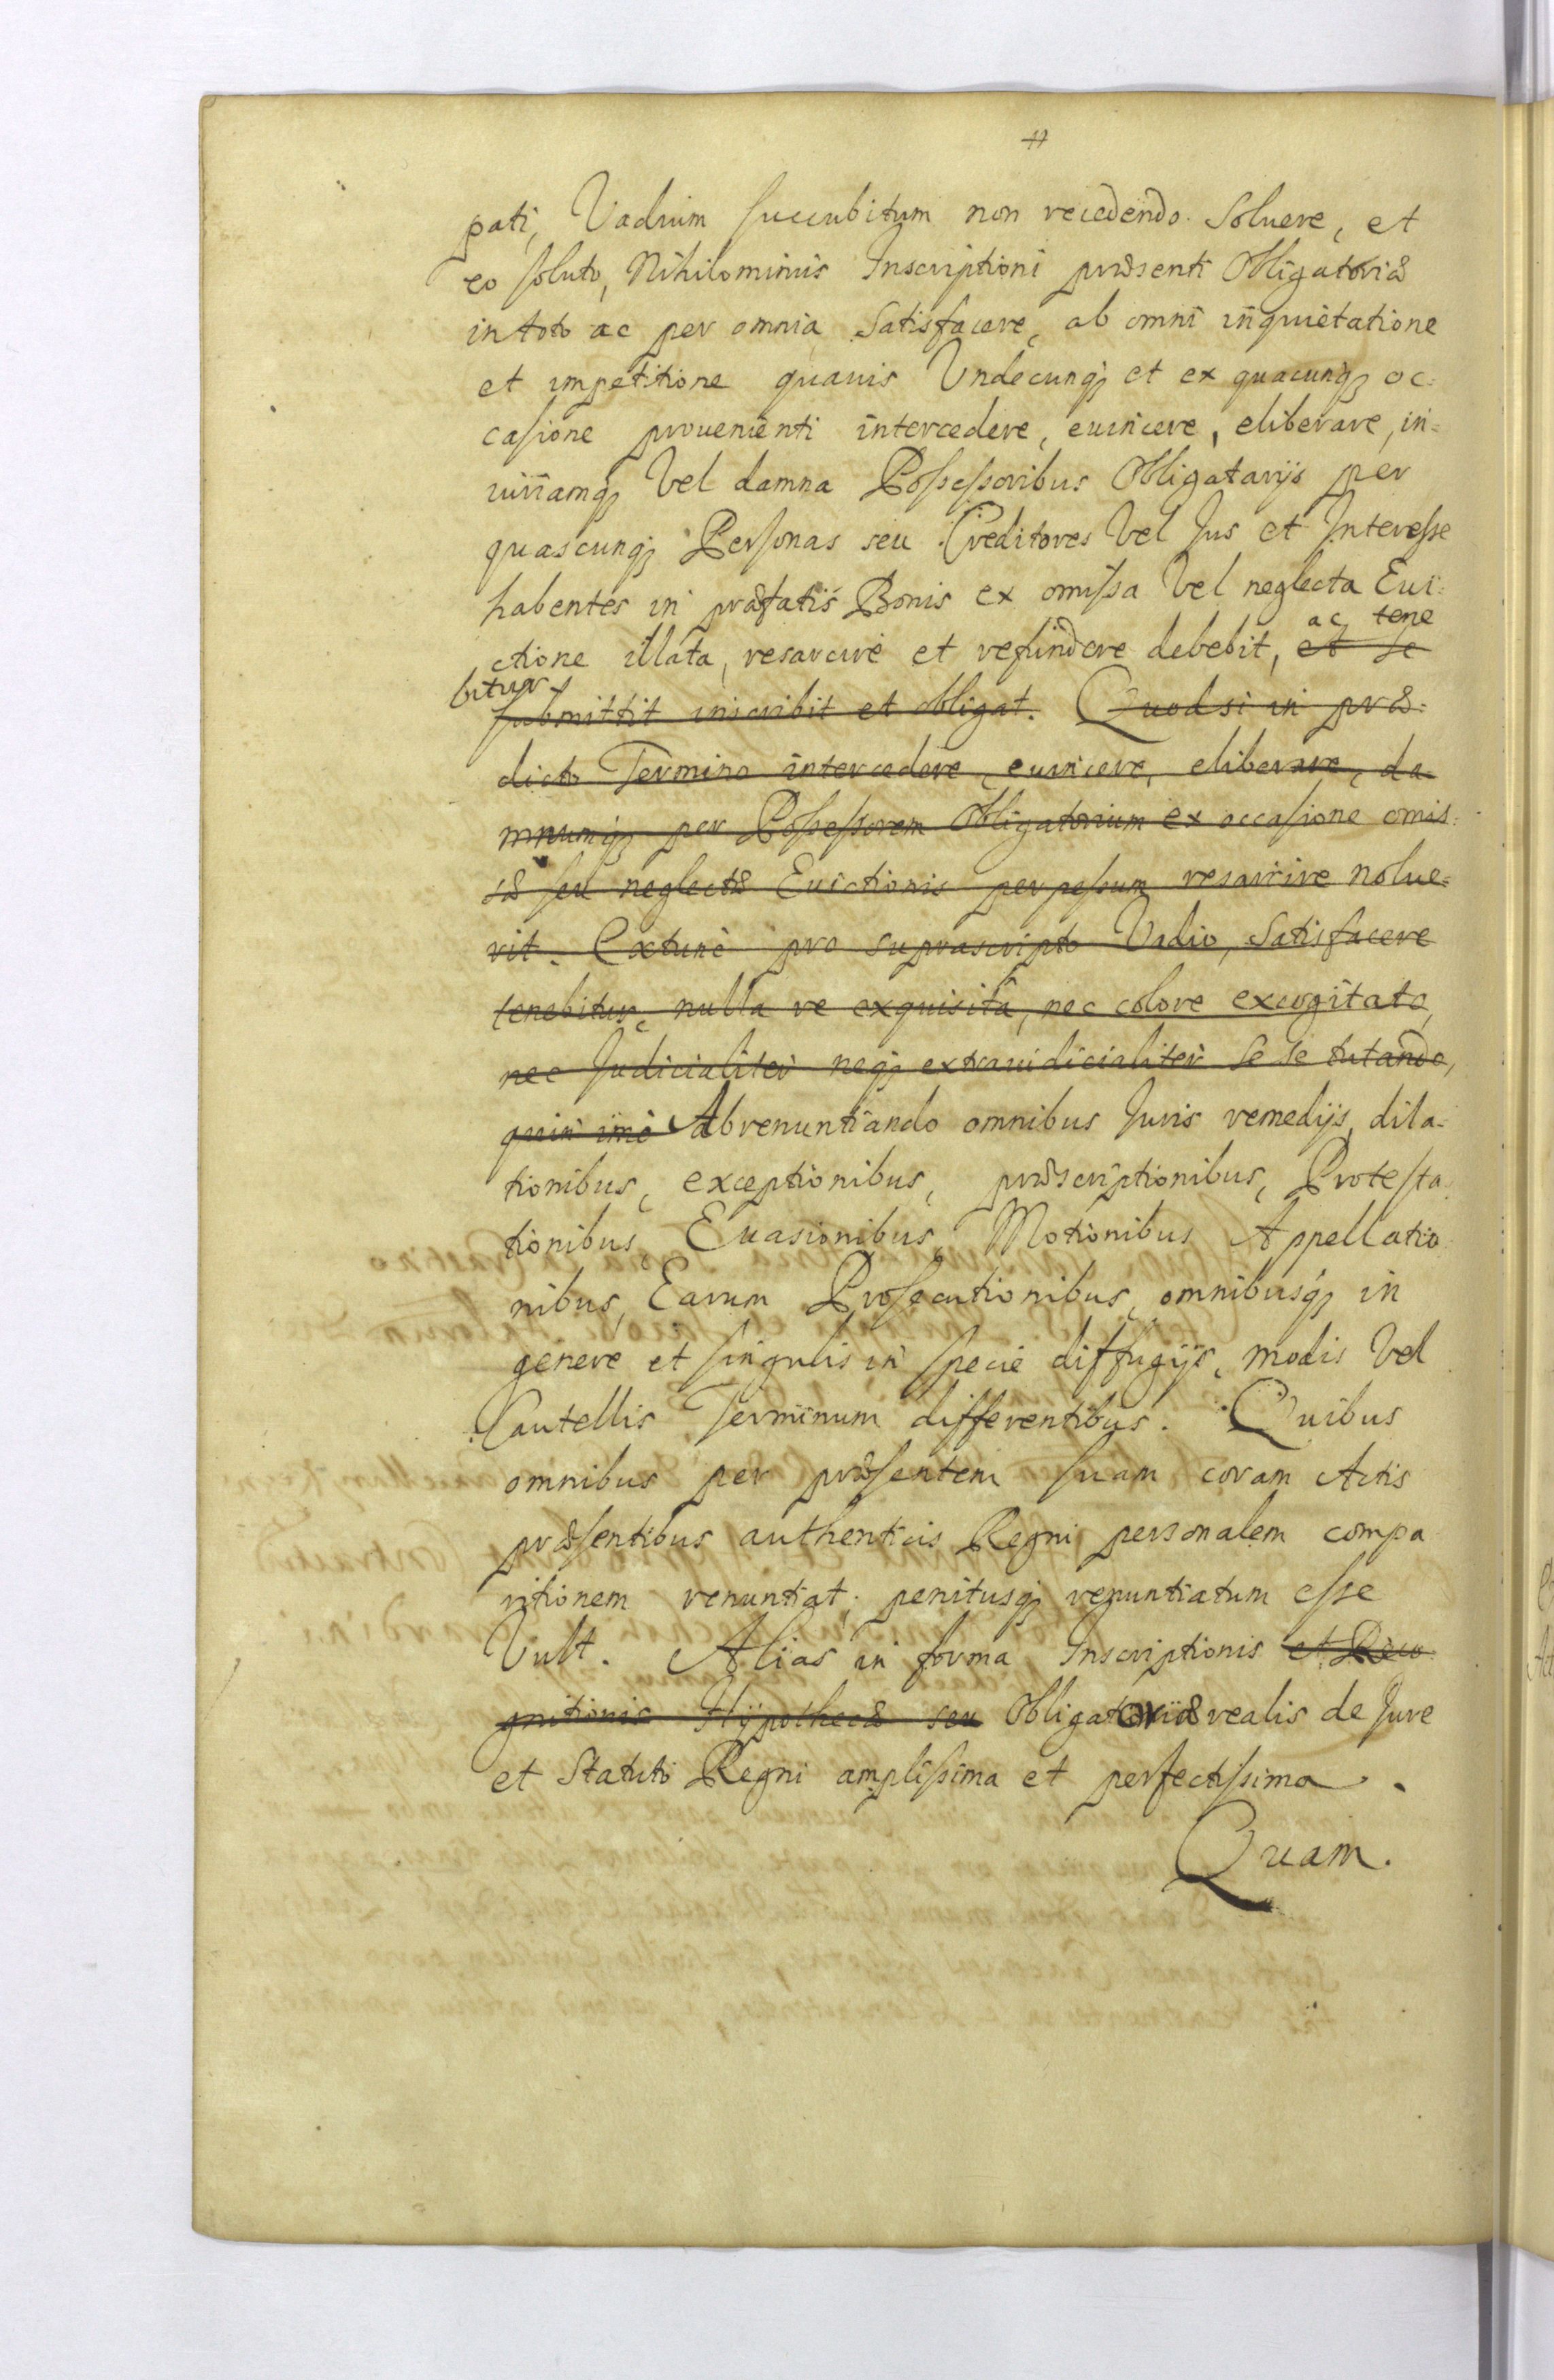 pati, Vadium succubitum non recedendo. Soluere, et
eo soluto, Nihilominus Inscriptioni præsenti Obligatoriæ
in toto ac per omnia Satisfacere, ab omni inquietatione
et impetitione quauis Vndecunq; et ex quacunq; oc=
casione prouenienti intercedere, euincere, eliberare, in=
iuriamq; Vel damna Possessoribus Obligatarijs per
quascunq; Personas seu Creditores Vel Jus et Interesse
habentes in præfatis Bonis ex omissa Vel neglecta Eui=
ac tene
ctione illata, resarcire et refundere debebit, et se
bitur
submittit inscribit et obligat. Quod si in præ=
dicto Termino intercedere, euincere, eliberare, da=
mnumq; per Possessorem Obligatorium ex occasione omis=
sæ seu neglectæ Euictionis perpessum resarcire nolue=
rit. Extunc pro suprascripto Vadio, Satisfacere
tenebitur, nulla re exquisita, nec colore excogitato,
nec Judicialiter neq; extraiudicialiter se se tutando,
quin imo Abrenuntiando omnibus Juris remedijs, dila=
tionibus, exceptionibus, præscriptionibus, Protesta=
tionibus, Euasionibus, Motionibus Appellatio
nibus, Earum Prosecutionibus, omnibusq; in
genere et singulis in specie diffugijs, modis Vel
Cautellis Terminum differentibus. Quibus
omnibus per præsentem suam coram Actis
præsentibus authenticis Regni personalem compa
ritionem renuntiat, penitusq; renuntiatum esse
Vult. Alias in forma Inscriptionis et Reco
gnitionis Hypothecæ seu Obligatoriæ realis de Jure
et Statuto Regni amplissima et perfectissima.
Quam.